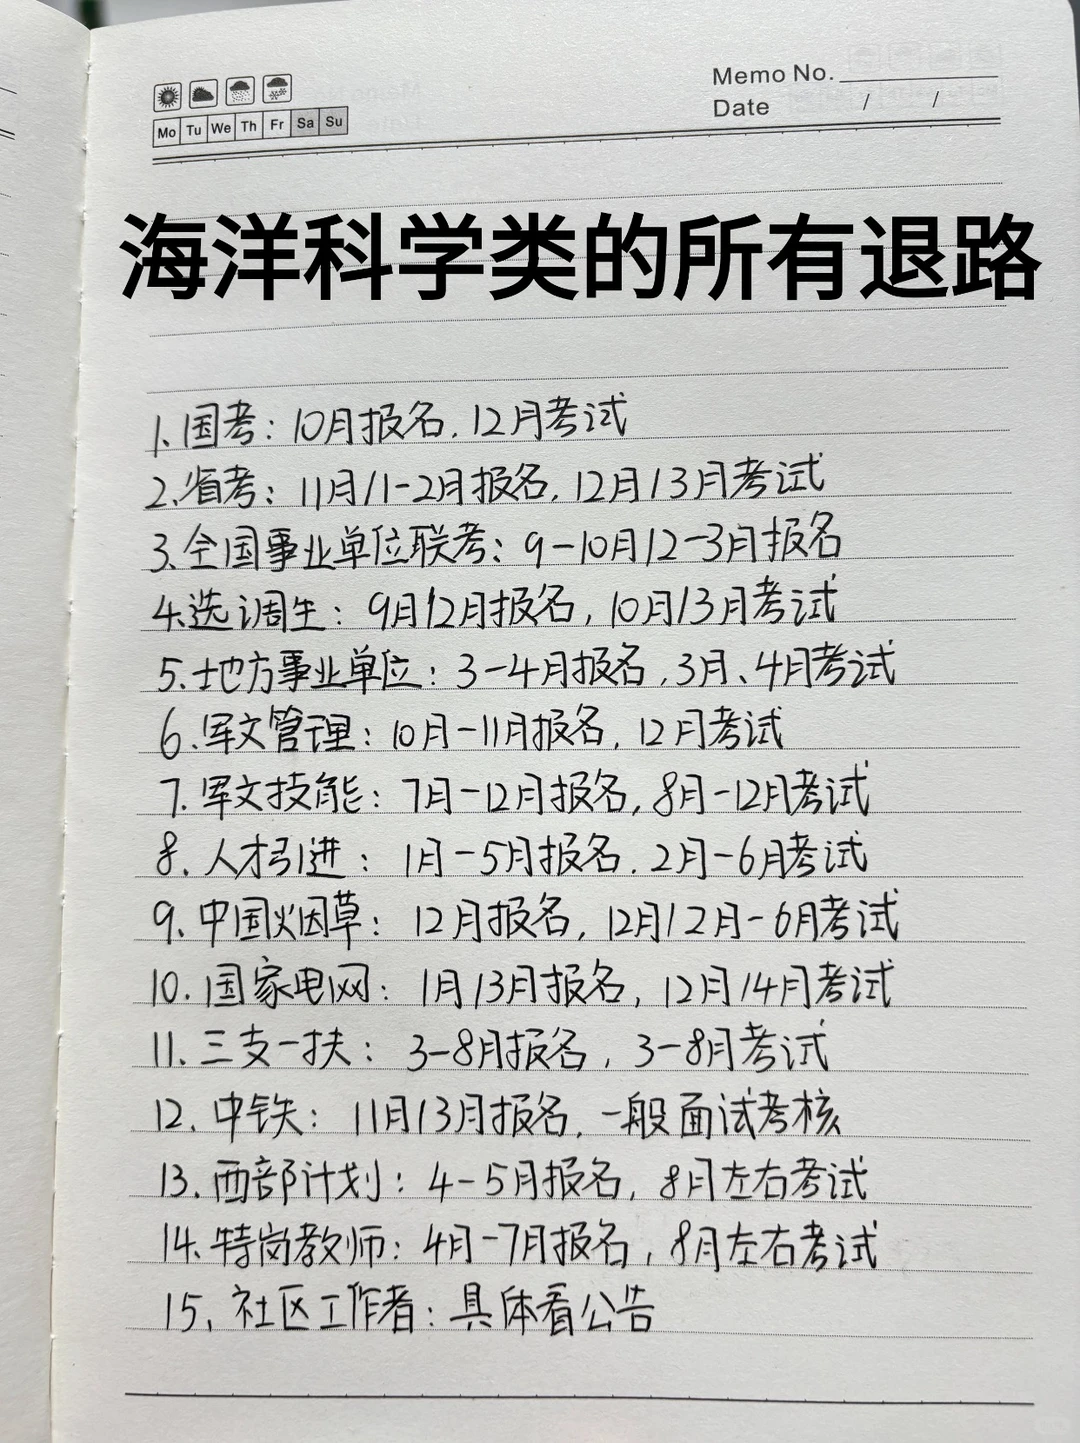 Memo No.
Mo Tu We Th Fr Sa Su
Date / /
海洋科学类的所有退路
1.国考：10月报名，12月考试
2.省考：11月/1-2月报名，12月/3月考试
3.全国事业单位联考：9-10月/2-3月报名
4.选调生：9月/2月报名，10月/3月考试
5.地方事业单位：3-4月报名，3月、4月考试
6.军文管理：10月-11月报名，12月考试
7.军文技能：7月-12月报名，8月-12月考试
8.人才引进：1月-5月报名，2月-6月考试
9.中国烟草：12月报名，12月/2月-6月考试
10.国家电网：1月/3月报名，12月/4月考试
11.三支一扶：3-8月报名，3-8月考试
12.中铁：11月/3月报名，一般面试考核
13.西部计划：4-5月报名，8月左右考试
14.特岗教师：4月-7月报名，8月左右考试
15.社区工作者：具体看公告